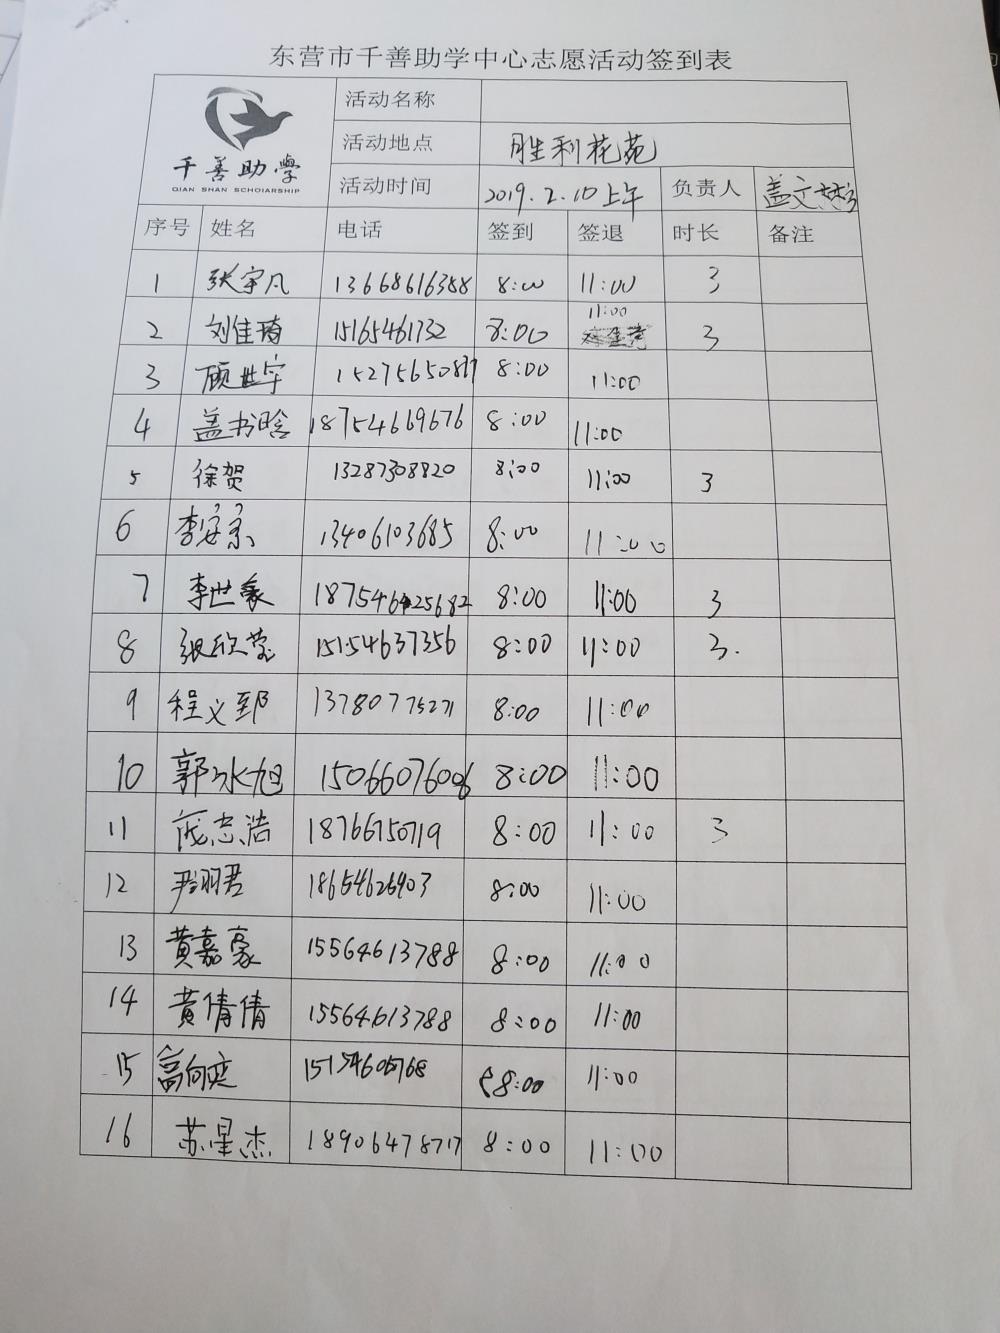 东营市千善助学中心志愿活动签到表
千善助學
QIAN SHAN SCHOIARSHIP
活动名称
活动地点 胜利花苑
活动时间 2019.2.10上午 负责人 盖文
序号 姓名 电话 签到 签退 时长 备注
1 张宇凡 13668616388 8:00 11:00 3
2 刘佳琦 15165461732 8:00 11:00 3
3 顾世宇 8:00 11:00
4 盖书晗 18754669676 8:00 11:00
5 徐贺 13287308820 8:00 11:00 3
6 李安 13406103685 8:00 11:00
7 李世豪 8:00 11:00 3
8 张欣莹 15154637356 8:00 11:00 3.
9 程义郅 13780775271 8:00 11:00
10 郭冰旭 15066076006 8:00 11:00
11 庞志浩 18766750719 8:00 11:00 3
12 尹羽君 18654626903 8:00 11:00
13 黄嘉豪 15564613788 8:00 11:00
14 黄倩倩 15564613788 8:00 11:00
15 高向奕 8:00 11:00
16 苏星杰 18906478717 8:00 11:00